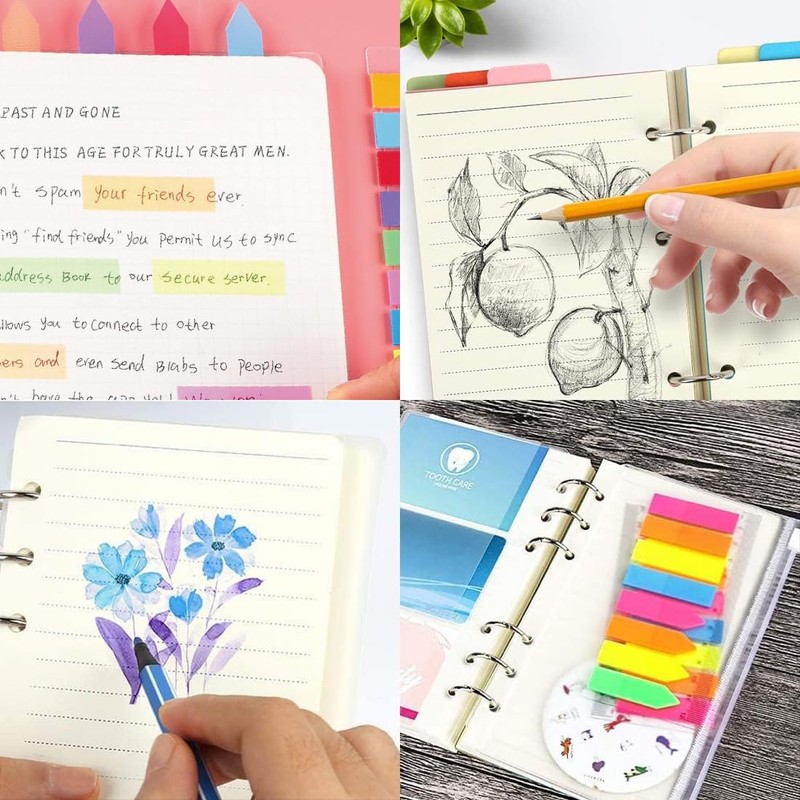 PAST AND GONE
K TO THIS AGE FOR TRULY GREAT MEN.
n't spam your friends ever.
ing "find friends" you permit us to sync
address Book to our secure server.
llows you to connect to other
ers and even send Blabs to people
TOOTH CARE